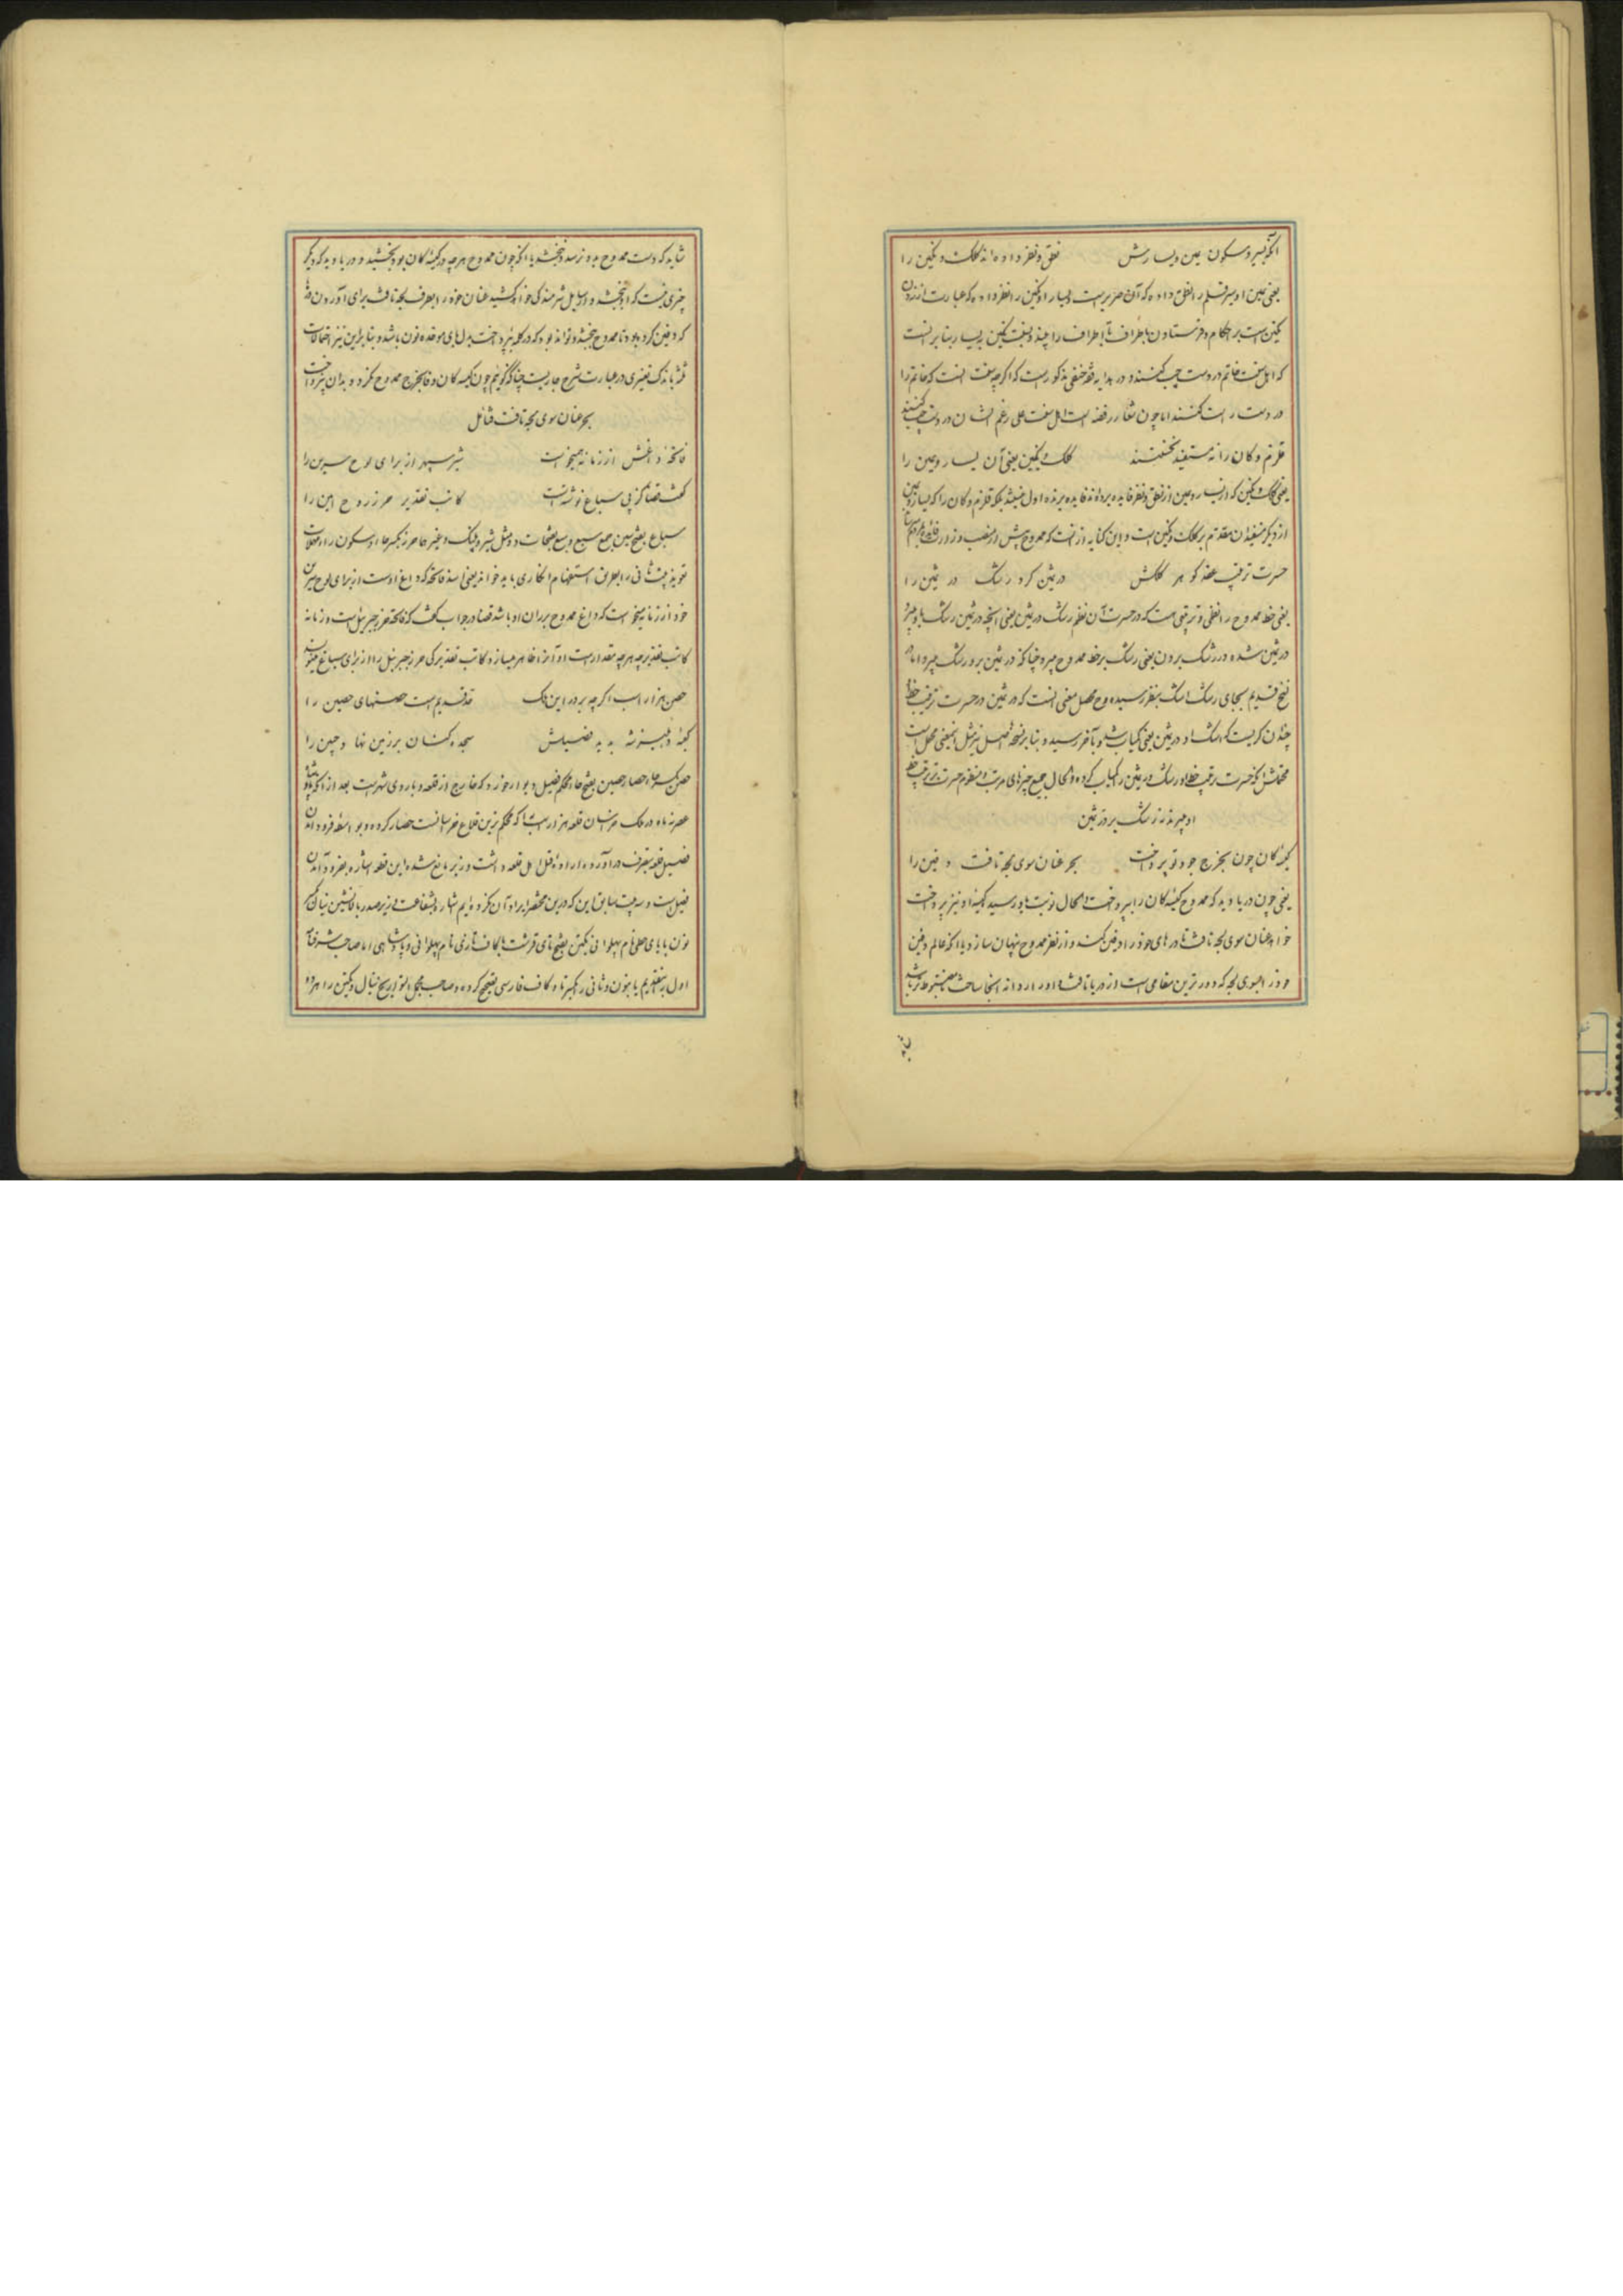 آنکو بسیر و سکون یمین و یسارش نطق و نظر داده اند کلک و نگین را
یعنی یمین او سیر قلم را نطق داده که آن صریر است و یسار او نگین را نظر داده که عبارت از زدن
نگین است بر احکام و فرستادن باطراف تا اطراف را بیند و نسبت نگین به یسار بنابر آنست
که اهل سنت خاتم در دست چپ کنند و در هدایه فقه حنفی مذکور است که اگر چه سنت آنست که خاتم را
در دست راست کنند اما چون شعار رفضه است اهل سنت علی رغم ایشان در دست چپ کنند
قلزم و کان را نه مستفید نخستند کلک و نگین یعنی آن یسار و یمین را
یعنی کلک و نگین که از یسار و یمین از نطق و نظر فایده برده اند فایده برنده اول نیستند بلکه قلزم و کان را که یسار و یمین
از دیگر مستفیدان مقدم بر کلک و نگین است و این کنایه از آنست که ممدوح پیش از منصب وزارت
حسرت ترتیب عقد گوهر کلکش در ثمین کرد رشک در ثمین را
یعنی خط ممدوح را نظمی و ترتیبی است که در حسرت آن نظم رشک در ثمین یعنی آنچه در ثمین رشک باو میبرد
در ثمین شده در رشک بردن یعنی رشک بر خط ممدوح میبرد چنانکه در ثمین برو رشک میبرد اما در
نسخ قدیم بجای رشک اشک بنظر رسیده و محصل معنی آنست که در ثمین در حسرت ترتیب خط
چندان گریست که اشک او در ثمین یعنی کمیاب شد و بآخر رسید و بنا بر نسخه اصل نیز مثل این معنی محتمل است
محتملش آنکه حسرت ترتیب خط او رشک در ثمین را کمیاب کرده و الحال جمیع چیزهای مرتب و منظوم حسرت بر ترتیب خط
او میبرند نه رشک بر در ثمین
کیسه کان چون بخرج جود تو پرداخت بحر عنان سوی لجه تافت دفین را
یعنی چون دریا دید که ممدوح کیسه کان را پرداخت و الحال نوبت باو رسید که کیسه او نیز پرداخت
خواهد عنان سوی لجه تافت تا درهای خود را دفین کند و از نظر ممدوح پنهان سازد یا آنکه عالم دفین
خود را بسوی لجه که دورترین مقامی است از دریا تافت و او را روانه آنجا ساخت تا مضبوط تر باشد
شاید
شاید که دست ممدوح بدو نرسد و نبخشد یا آنکه چون ممدوح هر چه در کیسه کان بود بخشید و دریا دید که دیگر
چیزی نیست که او ببخشد و سایل شرمندگی خواهد کشید عنان خود را بطرف لجه تافت برای آوردن
که دفین کرده بود تا ممدوح ببخشد و تواند بود که در کلمه بپرداخت بدل بای موحده نون باشد و بنا بر این نیز احتمالات
ثلثه باندک تغییری در عبارت شرح جاریست چنانکه گوییم چون کیسه کان وفا بخرج ممدوح نکرد و بدان نپرداخت
بحر عنان سوی لجه تافت فتأمل
فاتحه داغش از زمانه همیخواست شیر سپهر از برای لوح سرین را
گفت قضا کز پی سباع نوشته است کاتب تقدیر حرز روح امین را
سباع بکسر سین جمع سبع و سبع بفتحات دد مثل شیر و پلنگ و غیرها حرز بکسر حا و سکون را و معجمه
تعویذ بیت ثانی را بطرف استفهام انکاری باید خواند یعنی اسد فاتحه که داغ اوست از برای لوح سرین
خود از زمانه میخواست که داغ ممدوح بر ران او باشد قضا در جواب گفت که فاتحه حرز جبرییل است و زمانه
کاتب تقدیر چه هر چه مقدار است او آنرا ظاهر میسازد کاتب تقدیر کی حرز جبرییل را از برای سباع مینویسد
حصن هزار اسب اگر چه بر در این ملک قد قدیم است حصنهای حصین را
کیسه دهلیز شه بدید فصیلش سجده کنان بر زمین نهاد جبین را
حصن بکسر حاء حصار حصین بفتح حاء محکم فصیل دیواری خورد که خارج از قلعه و باروی شهر است بعد از آنکه پادشاه
عصر ماه در ملک خراسان قلعه هزار اسب را که محکم ترین قلاع خراسانست حصار کرده و بواسطه فرود آمدن
فصیل قلعه بتصرف درآورده اراده قتل اهل قلعه داشت وزیر مانع شده این قطعه اشاره بفرود آمدن
فصیل است و سه بیت سابق این که درین مختصر ایراد آن نکرده ایم اشاره بشفاعت وزیر صدر با نشین نیال تکین
نون با یای حطی نام پهلوانی تکین بفتح تای قرشت با کاف تازی نام پهلوانی و پادشاهی اما صاحب شرفنامه
اول بتقدیم یا بنون و ثانی را بکسر تا و کاف فارسی تصحیح کرده و صاحب مجمل التواریخ نیال و تکین را هر دو